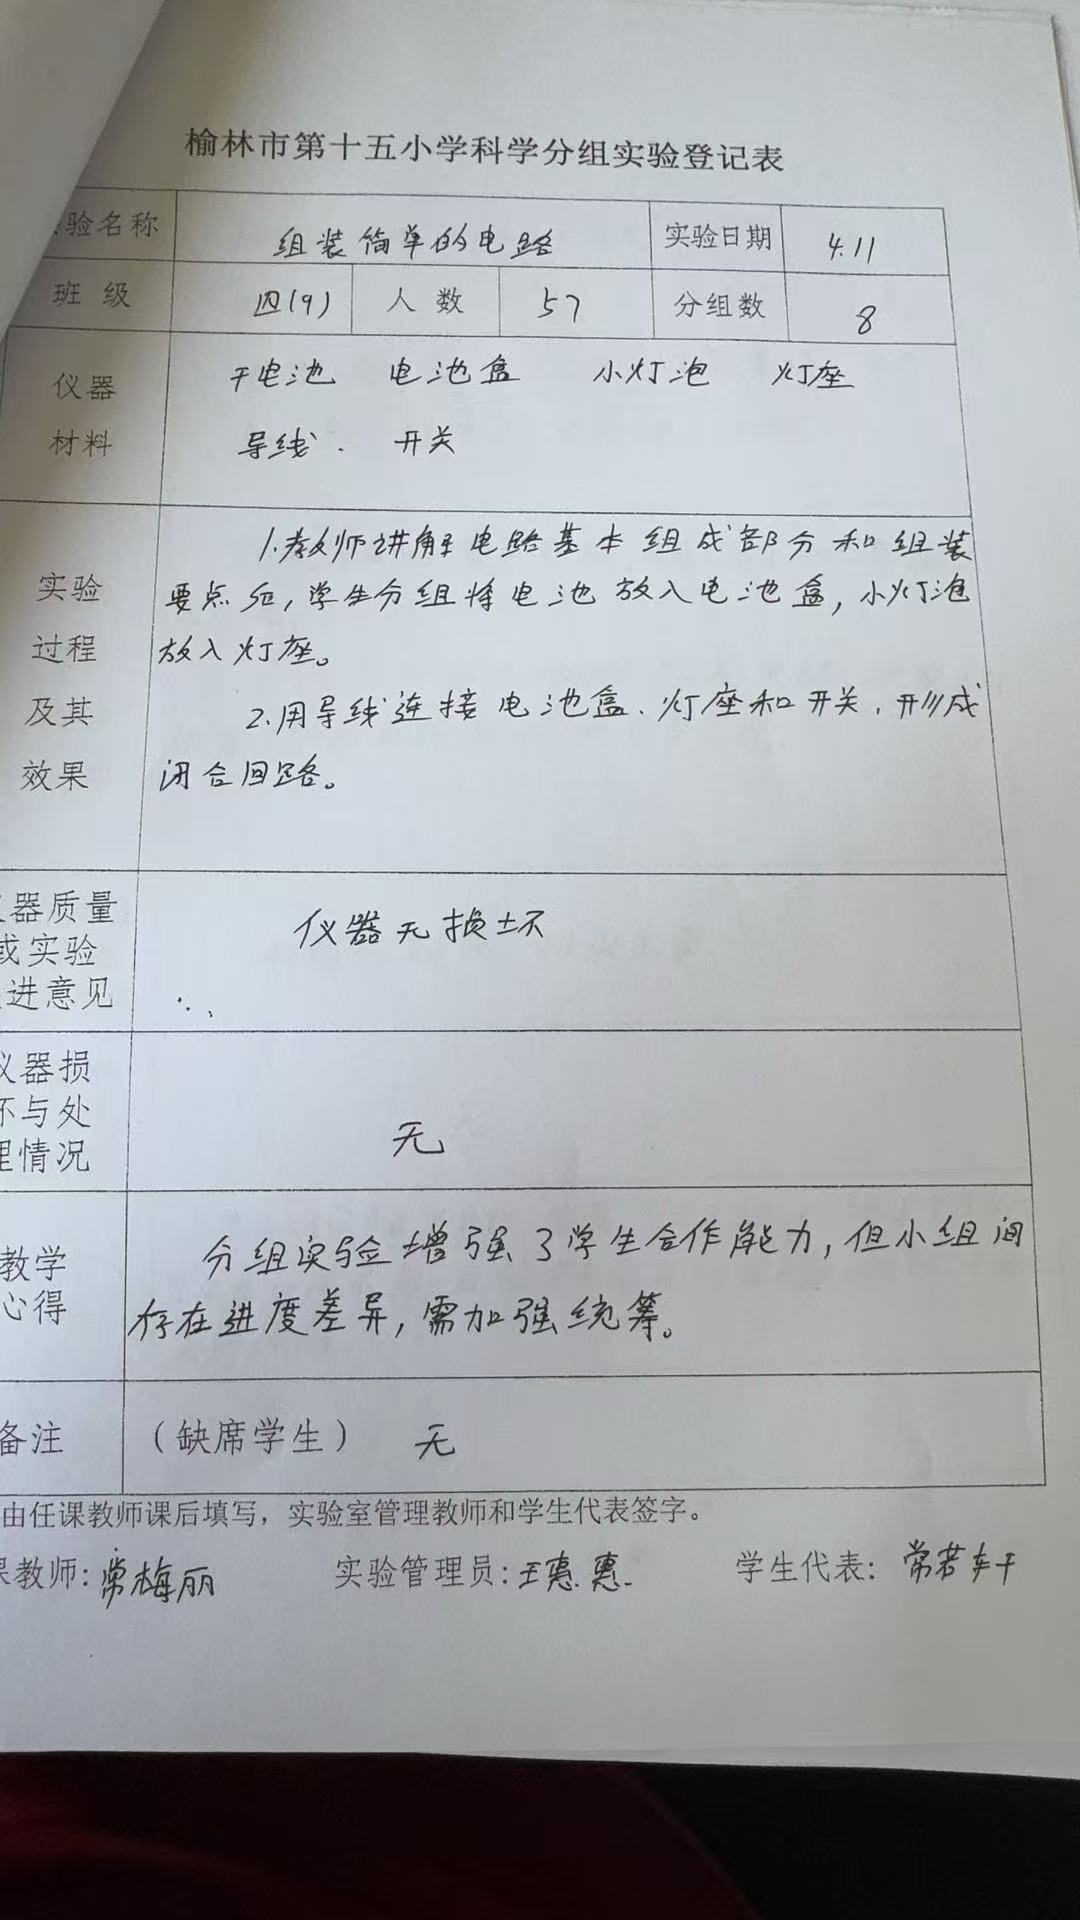 榆林市第十五小学科学分组实验登记表
验名称 组装简单的电路 实验日期 4.11
班 级 四(9) 人 数 57 分组数 8
仪器 干电池 电池盒 小灯泡 灯座
材料 导线. 开关
1.教师讲解电路基本组成部分和组装
实验 要点后,学生分组将电池放入电池盒,小灯泡
过程 放入灯座。
及其 2.用导线连接电池盒、灯座和开关,形成
效果 闭合回路。
器质量 仪器无损坏
或实验
进意见
仪器损
坏与处 无
理情况
教学 分组实验增强了学生合作能力,但小组间
心得 存在进度差异,需加强统筹。
备注 (缺席学生) 无
由任课教师课后填写,实验室管理教师和学生代表签字。
课教师:常梅丽 实验管理员:王惠惠. 学生代表:常若轩